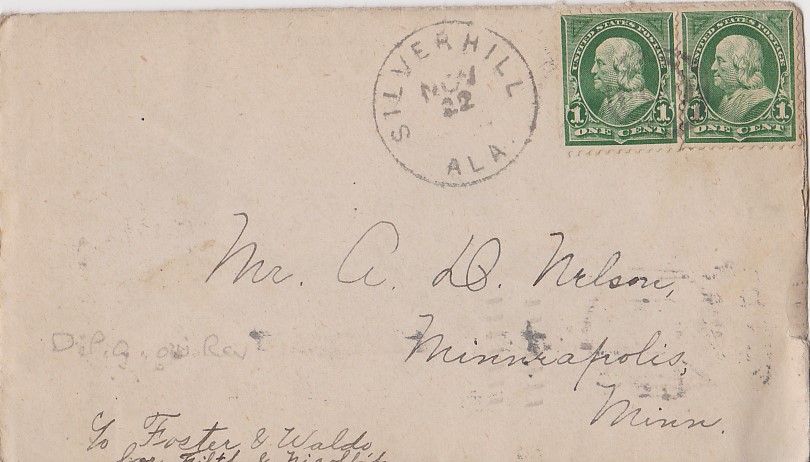 SILVERHILL
NOV
22
ALA.
UNITED STATES POSTAGE
1 1
ONE CENT
UNITED STATES POSTAGE
1 1
ONE CENT
Mr. A. D. Nelson,
Minneapolis,
Minn.
on Rev
c/o Foster & Waldo,
Cor. Fifth & Nicollet